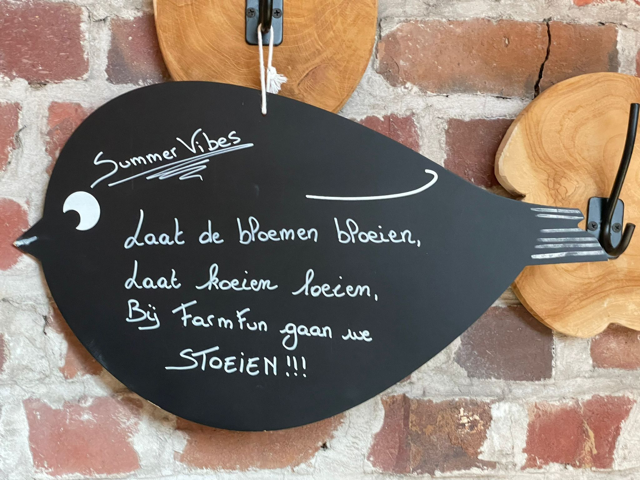 Summer Vibes
Laat de bloemen bloeien,
Laat koeien loeien,
Bij FarmFun gaan we
STOEIEN!!!